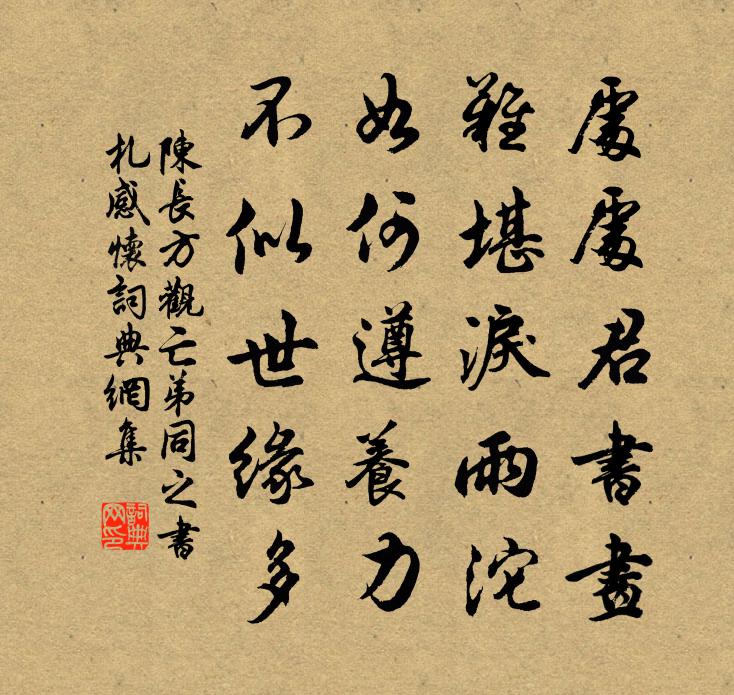 處處君書畫
難堪淚雨沱
如何遵養力
不似世緣多
陳長方觀亡弟同之書
札感懷詞典網集
詞典網印